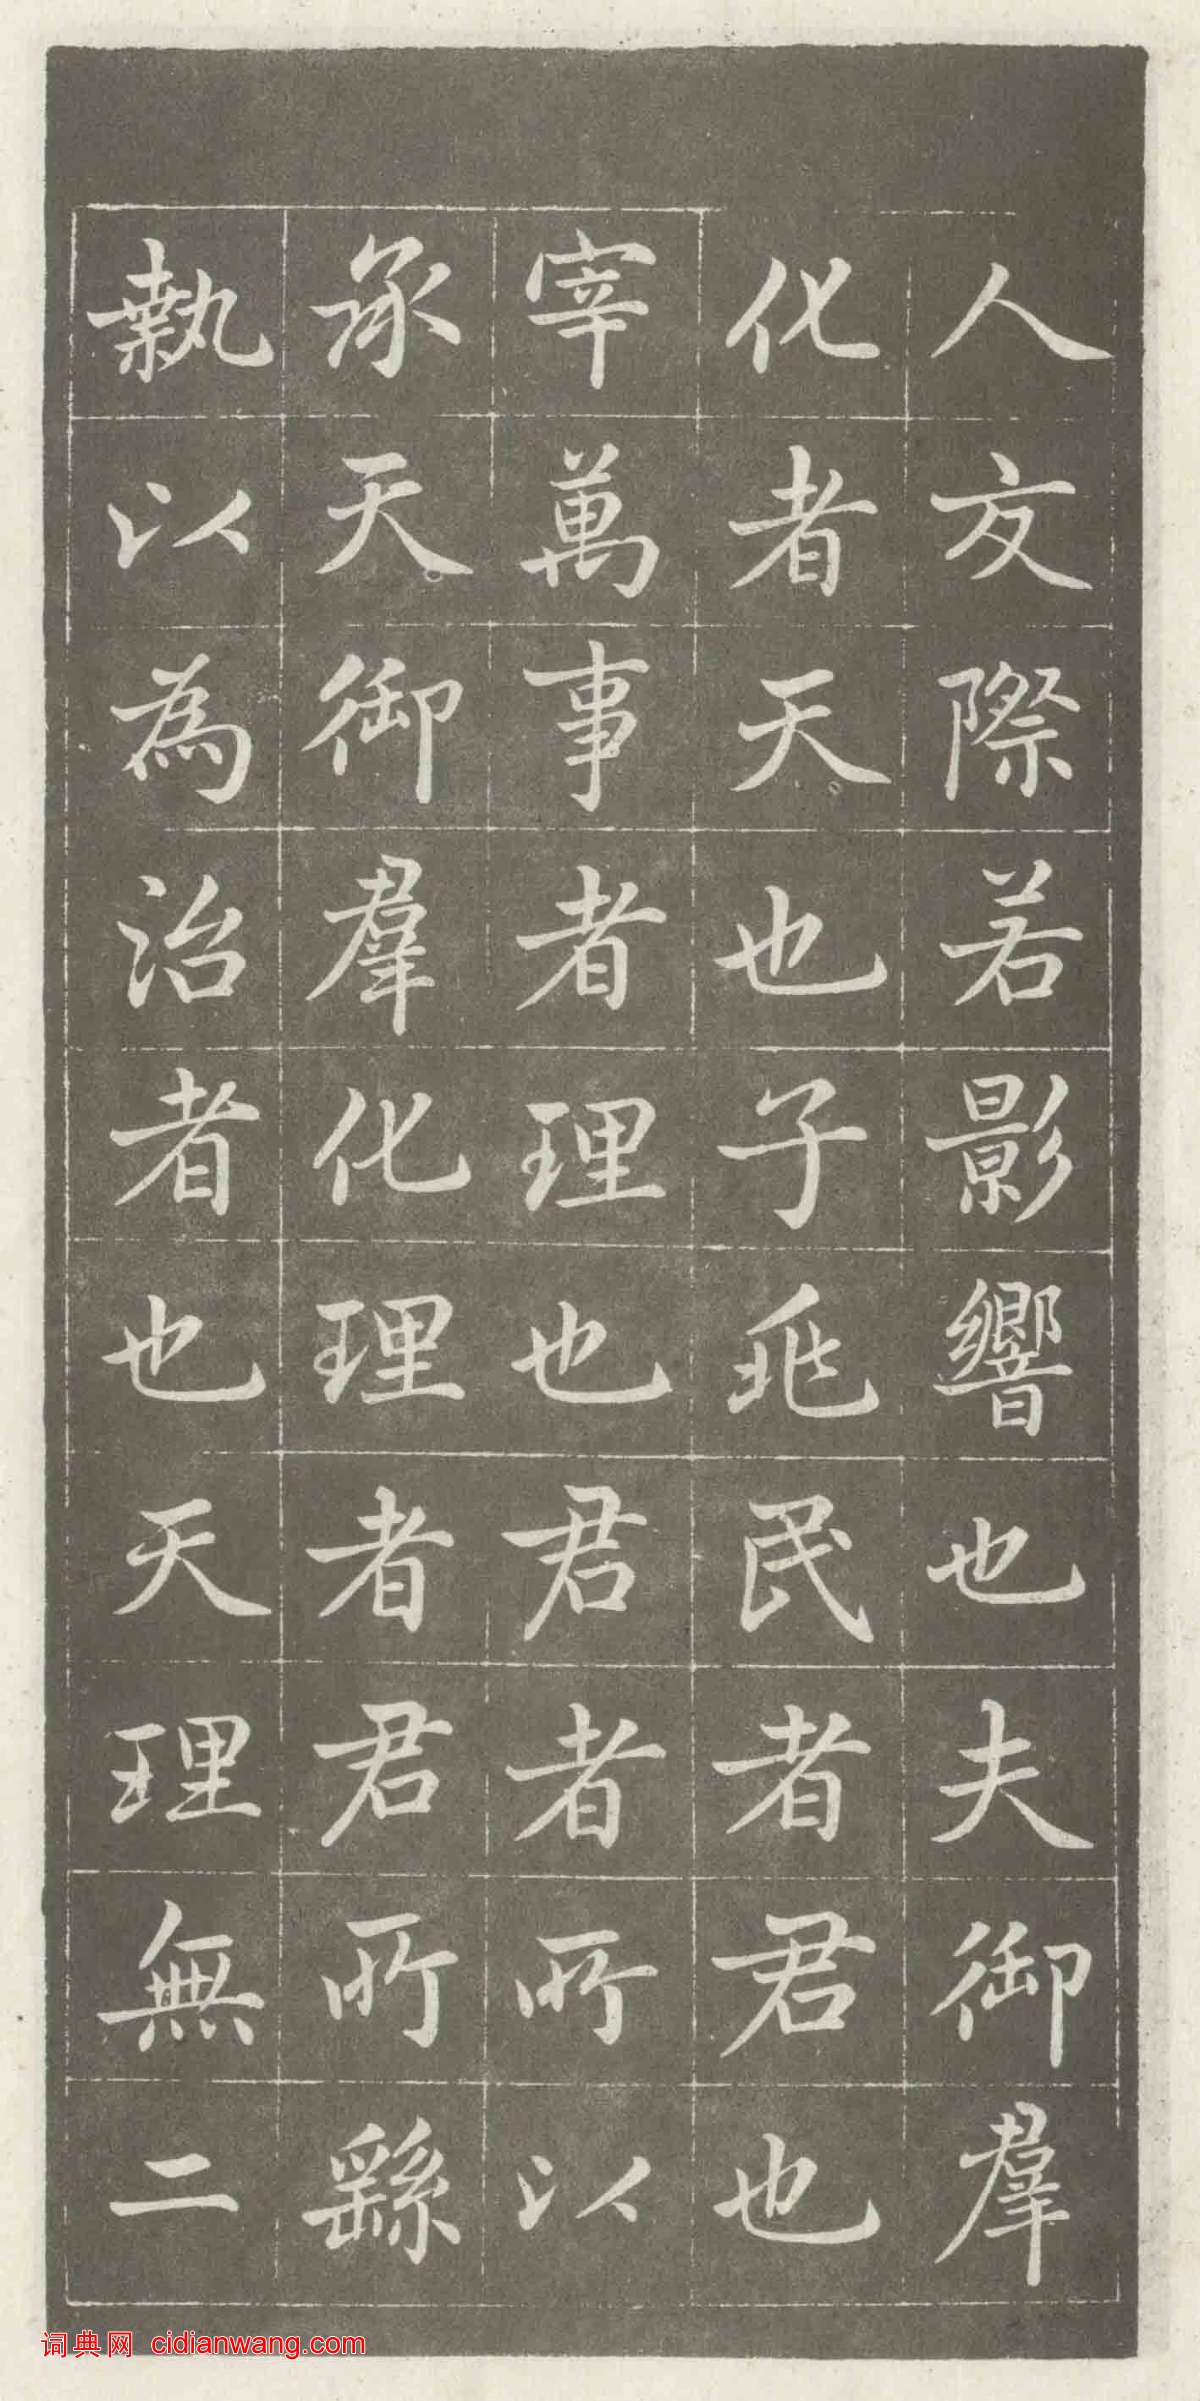 人交際若影響也夫御羣
化者天也子兆民者君也
宰萬事者理也君者所以
承天御羣化理者君所繇
執以為治者也天理無二
词典网 cidianwang.com